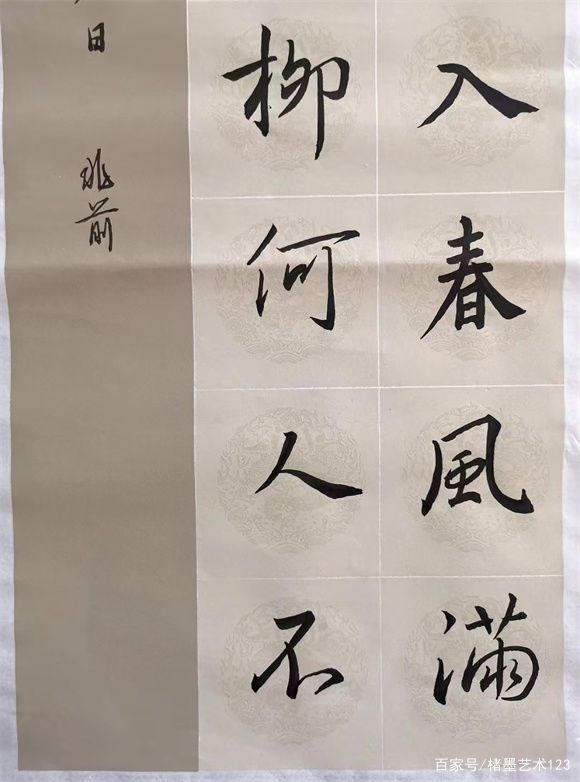 入春風滿
柳何人不
日
前
百家号/楮墨艺术123